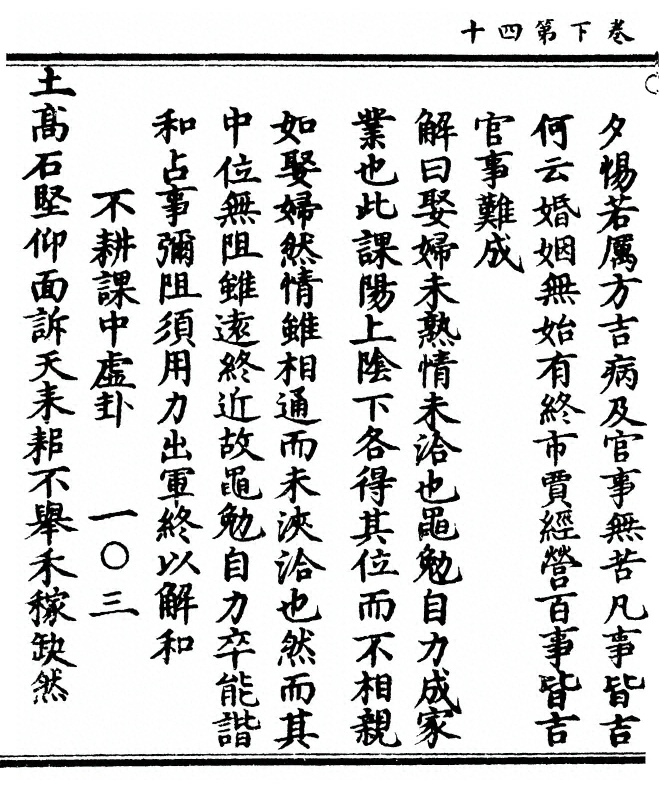 卷下第四十
夕惕若厲方吉病及官事無苦凡事皆吉
何云婚姻無始有終市賈經營百事皆吉
官事難成
解曰娶婦未熟情未洽也黽勉自力成家
業也此課陽上陰下各得其位而不相親
如娶婦然情雖相通而未浹洽也然而其
中位無阻雖遠終近故黽勉自力卒能諧
和占事彌阻須用力出軍終以解和
不耕課中虛卦 一〇三
土高石堅仰面訴天耒耜不舉禾稼缺然